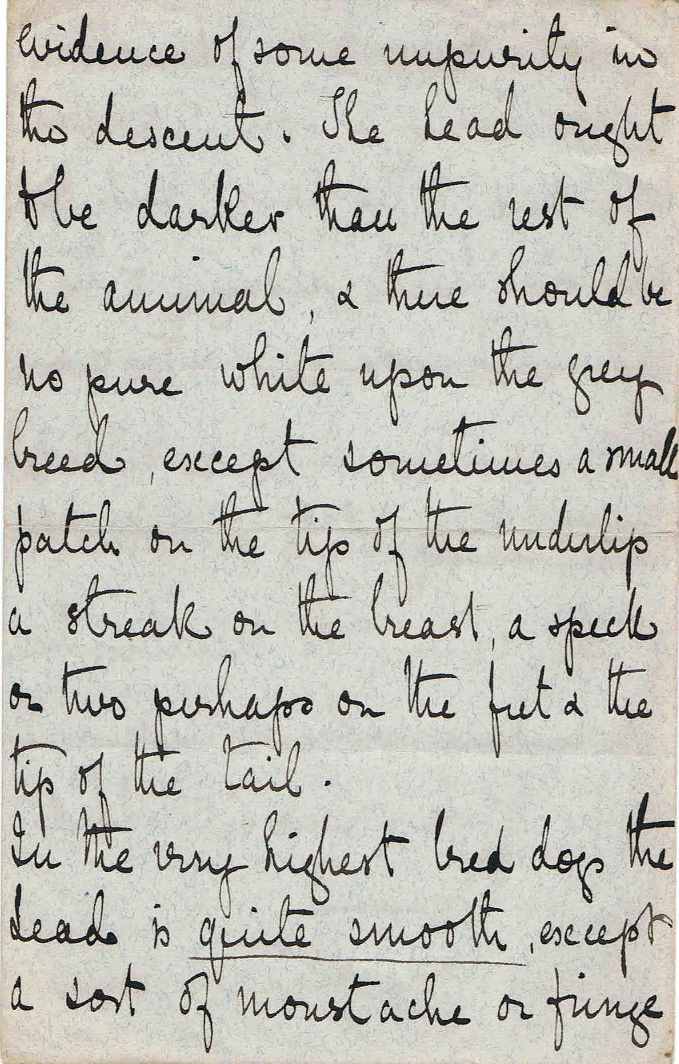 evidence of some impurity in
the descent. The head ought
to be darker than the rest of
the animal, & there should be
no pure white upon the grey
breed, except sometimes a small
patch on the tip of the underlip
a streak on the breast, a speck
or two perhaps on the feet & the
tip of the tail.
In the very highest bred dogs the
head is quite smooth, except
a sort of moustache or fringe